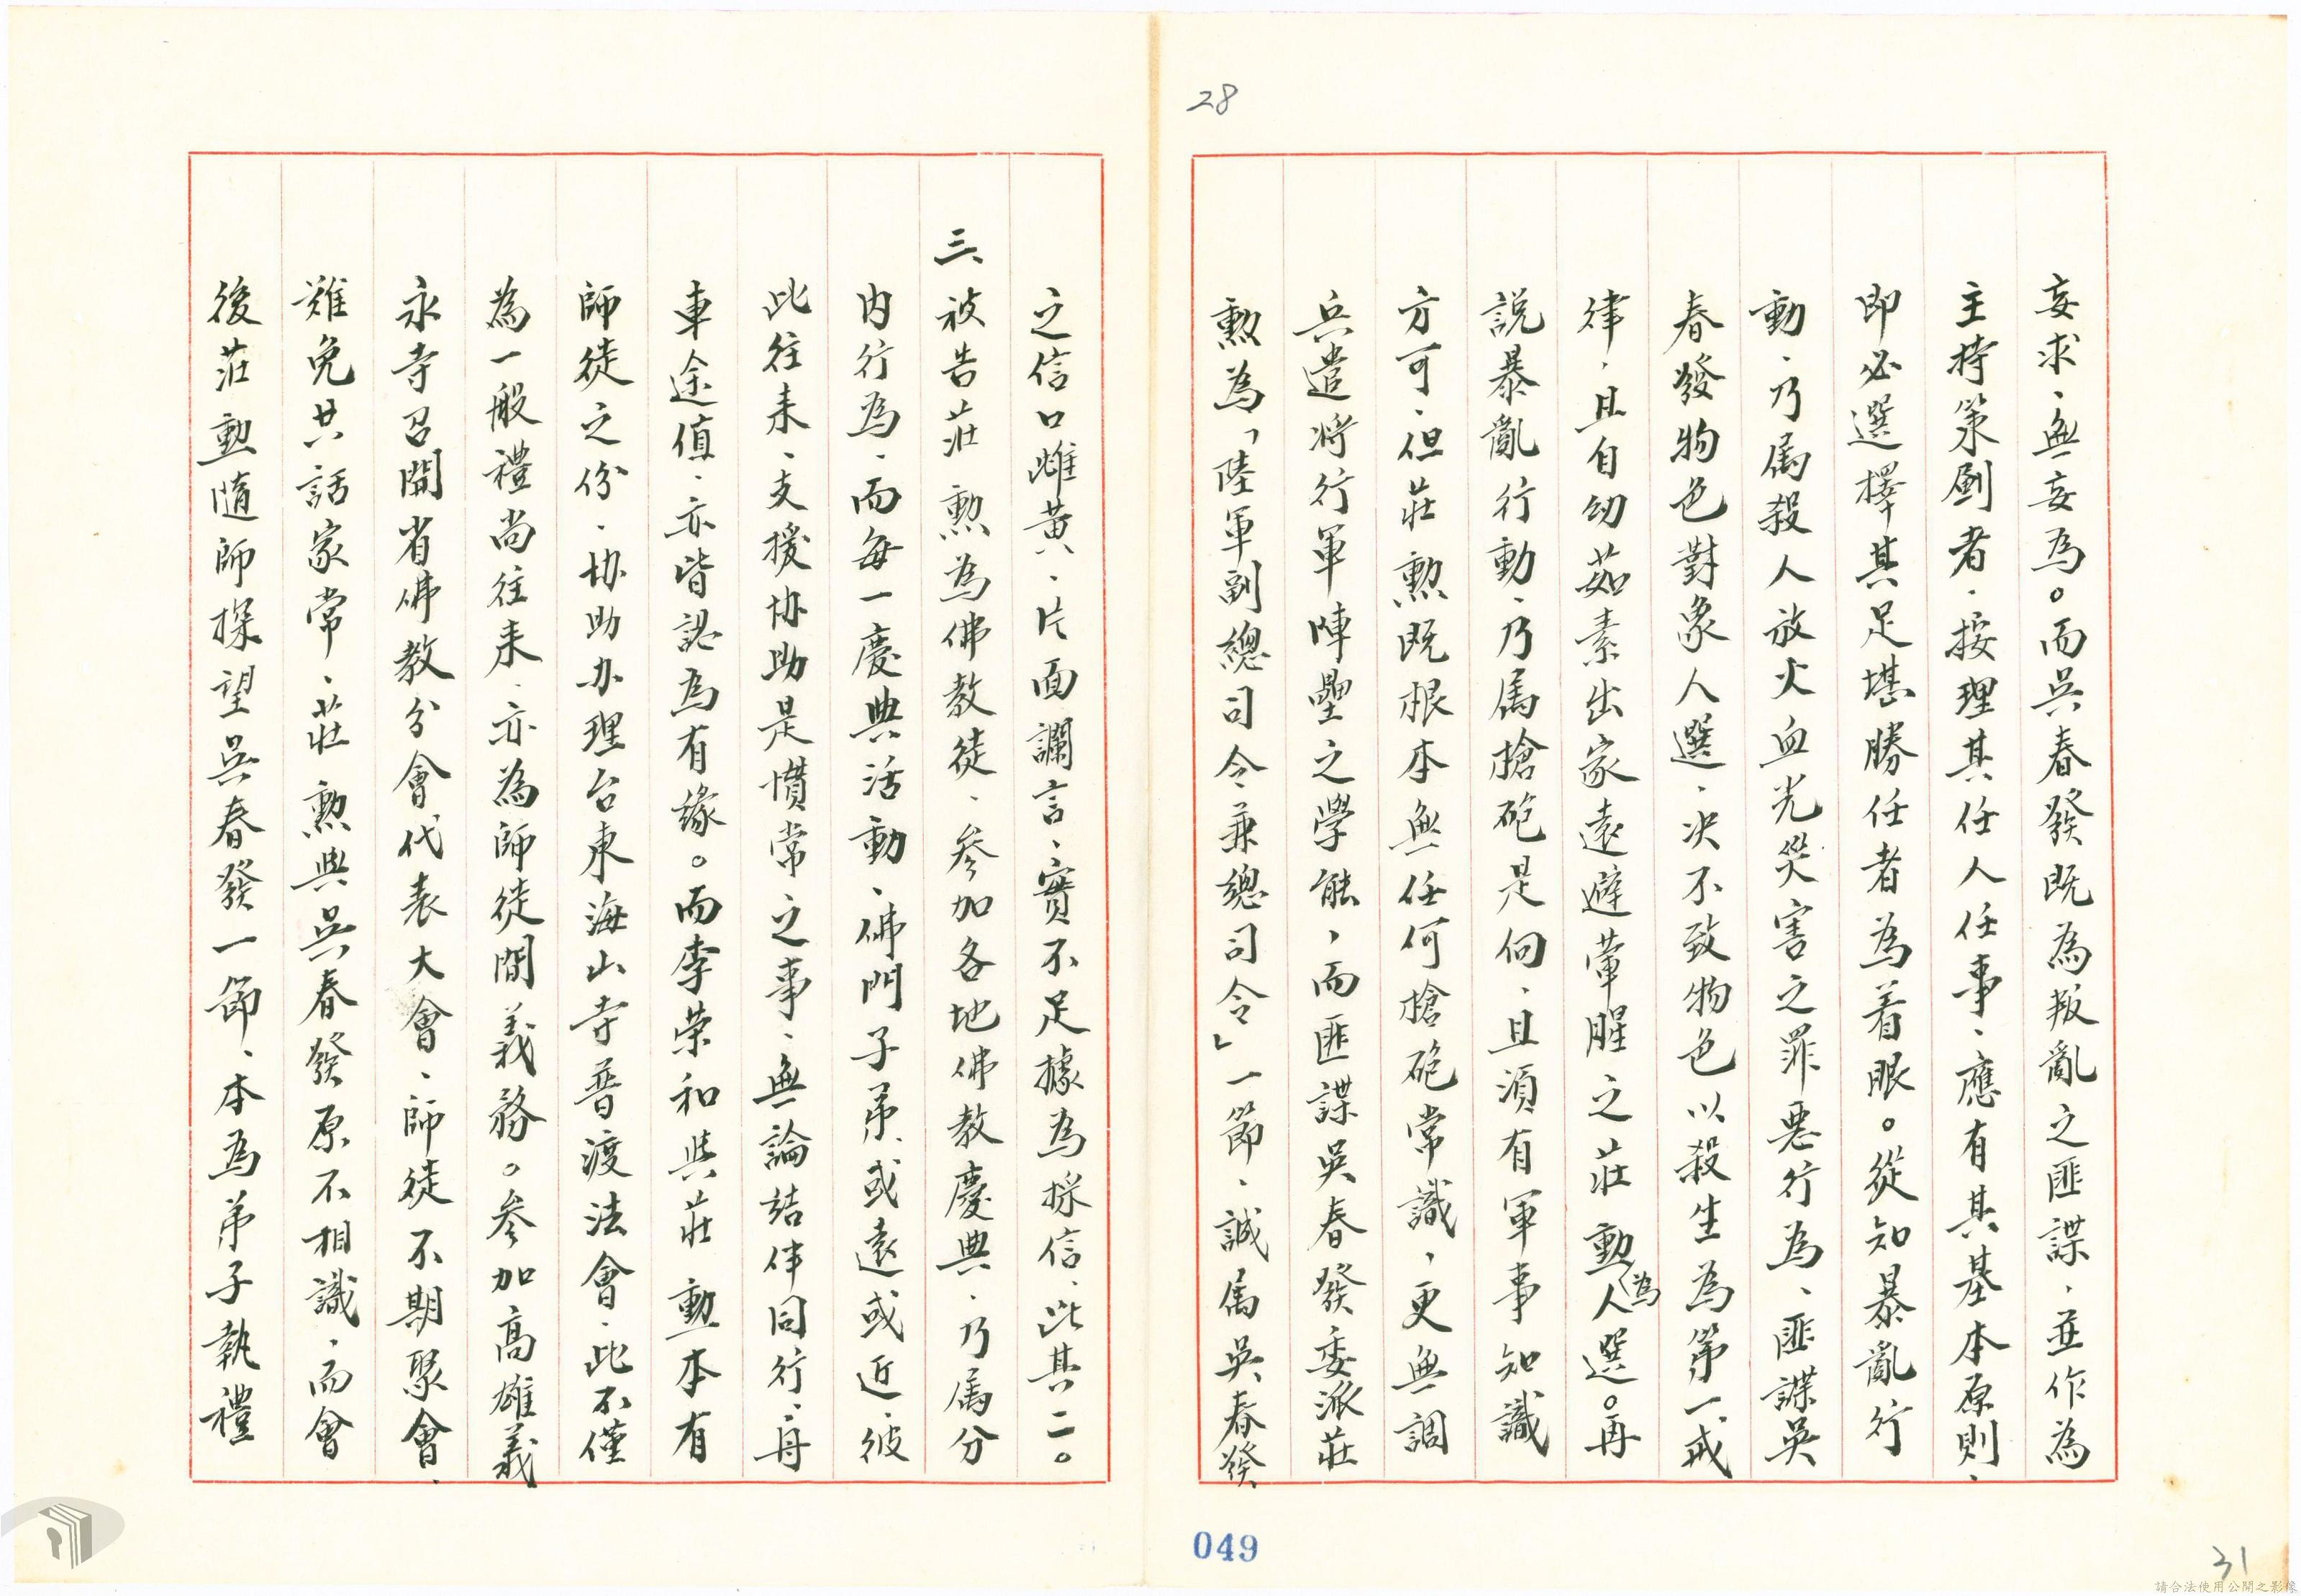 28
妄求、無妄為。而吳春發既為叛亂之匪諜，並作為
主持策劃者，按理其任人任事、應有其基本原則、
即必選擇其足堪勝任者為着眼。從知暴亂行
動、乃屬殺人放火血光災害之罪惡行為、匪諜吳
春發物色對象人選、决不致物色以殺生為第一戒
律，且自幼茹素出家遠避葷腥之莊勳為人選。再
說暴亂行動、乃屬槍砲是伺、且須有軍事知識
方可、但莊勲既根本無任何槍砲常識，更無調
兵遣將行軍陣壘之學能，而匪諜吳春發委派莊
勲為「陸軍副總司令兼總司令」一節、誠屬吳春發
之信口雌黃、片面讕言、實不足據為採信、此其二。
三、被告莊勲為佛教徒、參加各地佛教慶典、乃屬分
内行為、而每一慶典活動、佛門子弟、或遠或近、彼
此往来、支援協助是慣常之事、無論結伴同行、舟
車途值、亦皆認為有緣。而李荣和與莊勳本有
師徒之份、協助办理台東海山寺普渡法會、此不僅
為一般禮尚往来、亦為師徒間義務。參加高雄義
永寺召開省佛教分會代表大會、師徒不期聚會、
難免共話家常、莊勲與吳春發原不相識、而會
後莊勳隨師探望吳春發一節、本為弟子執禮
049
31
請合法使用公開之影像